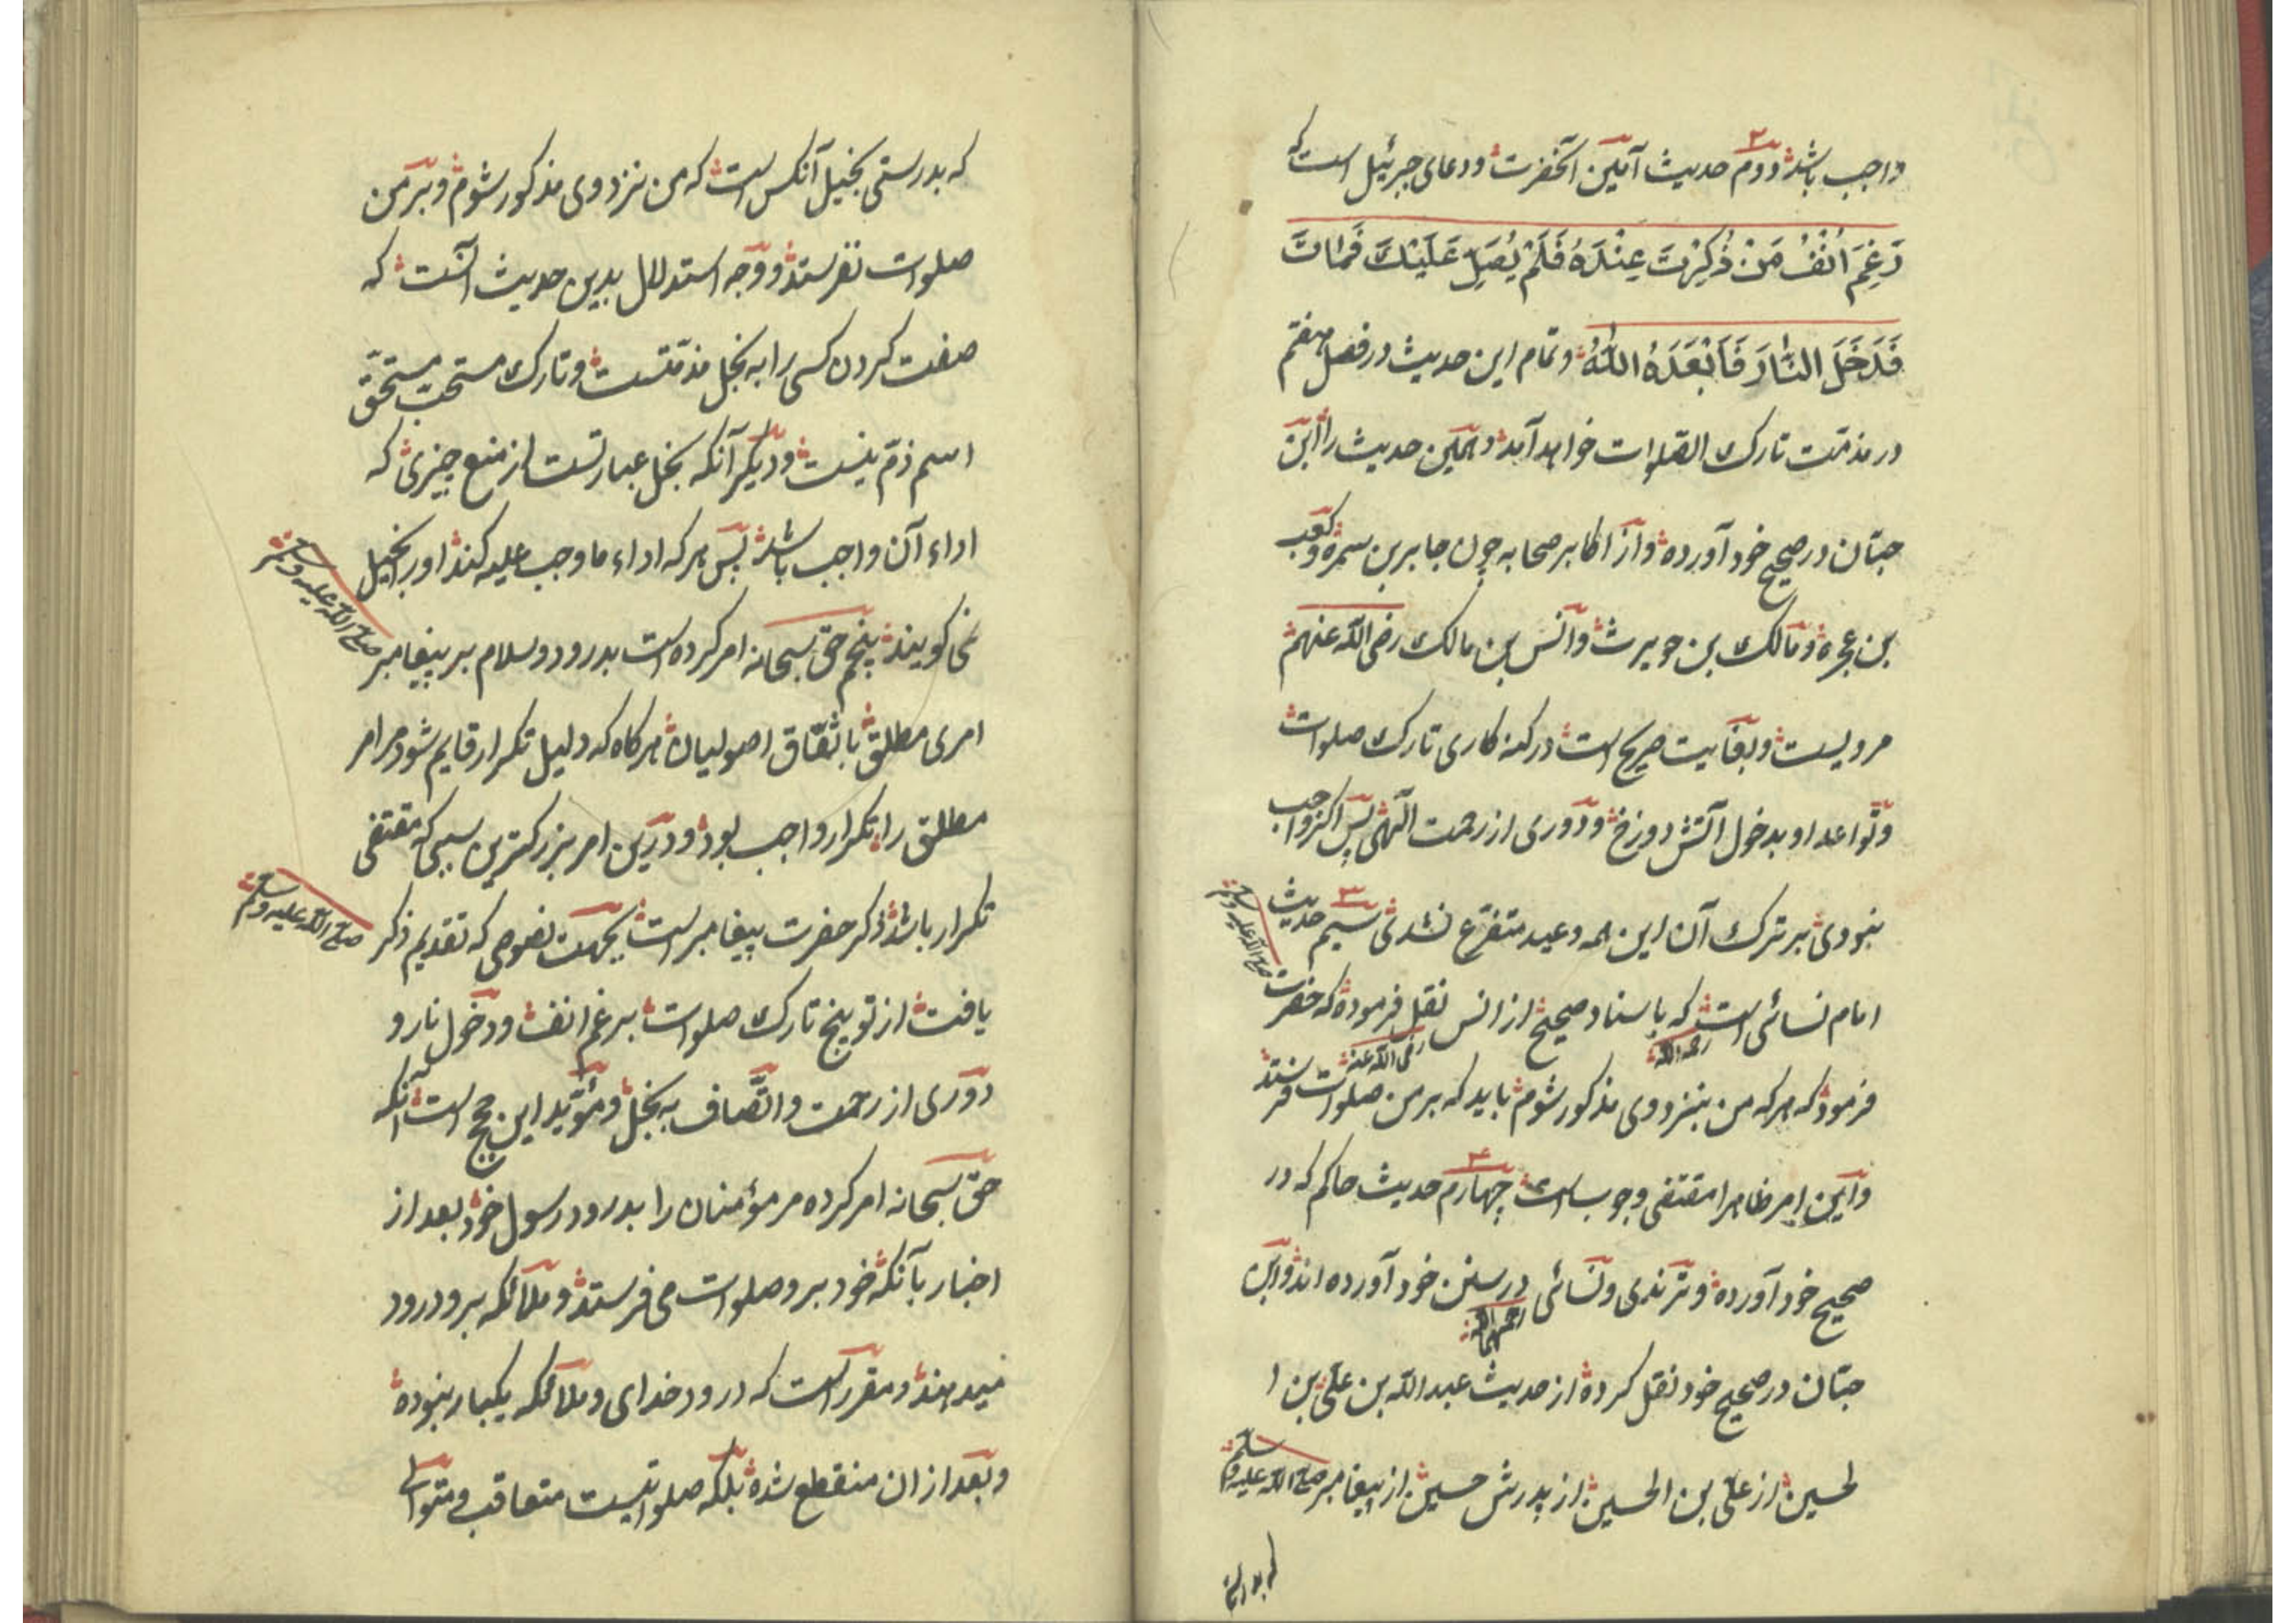 واجب باشد دوم حدیث آمین آنحضرت ودعای جبرئیل است که
رَغِمَ اَنْفُ مَنْ ذُکِرْتَ عِنْدَهُ فَلَمْ یُصَلِّ عَلَیْكَ فَمَاتَ
فَدَخَلَ النَّارَ فَاَبْعَدَهُ اللّٰهُ وتمام این حدیث در فصل هفتم
در مذمّت تارك الصّلوات خواهد آمد وهمین حدیث را ابن
حبّان در صحیح خود آورده واز اکابر صحابه چون جابر بن سمره وکعب
بن عجره ومالك بن حویرث وانس بن مالك رضی اللّه عنهم
مرویست وبغایت صریح است در کنه کاری تارك صلوات
وتواعد او بدخول آتش دوزخ ودوری از رحمت الٓهی پس اکر واجب
نبودی بر ترك آن این همه وعید متفرّع نشدی سیم حدیث
امام نسائی رحمه اللّه است که باسناد صحیح از انس رضی اللّه عنه نقل فرموده که حضرت صلی اللّه علیه وسلم
فرمود که هر که من بنزد وی مذکور شوم باید که بر من صلوات فرستد
واین امر ظاهرا مقتضی وجوب است چهارم حدیث حاکم که در
صحیح خود آورده وترمذی ونسائی رحمهما اللّه در سنن خود آورده اند وابن
حبّان در صحیح خود نقل کرده از حدیث عبد اللّه بن علیّ بن ا
لحسین از علیّ بن الحسین از پدرش حسین از پیغامبر صلی اللّه علیه وسلم
که بدرستی
که بدرستی بخیل آنکس است که من نزد وی مذکور شوم وبر من
صلوات نفرستد ووجه استدلال بدین حدیث آنست که
صفت کردن کسی را به بخل مذمّتست وتارك مستحب مستحقّ
اسم ذمّ نیست ودیکر آنکه بخل عبارتست از منع چیزی که
اداء آن واجب باشد پس هر که اداء ما وجب علیه کند او را بخیل
نمی کویند پنجم حقّ سبحانه امر کرده است بدرود وسلام بر پیغامبر صلی اللّه علیه وسلم
امری مطلق باتّفاق اصولیان هر کاه که دلیل تکرار قایم شود مر امر
مطلق را تکرار واجب بود ودرین امر بزرکترین سببی که مقتضی
تکرار باشد ذکر حضرت پیغامبر است صلی اللّه علیه وسلم بجهت نصوصی که تقدیم ذکر
یافت از توبیخ تارك صلوات برغم انف ودخول نار و
دوری از رحمت واتّصاف به بخل ومؤیّد این حجج است آنکه
حقّ سبحانه امر کرده مر مؤمنان را بدرود رسول خود بعد از
اخبار بآنکه خود برو صلوات می فرستد وملائکه برو درود
میدهند ومقرر است که درود خدای وملائکه یکبار نبوده
وبعد از ان منقطع شده بلکه صلواتیست متعاقب ومتوالی